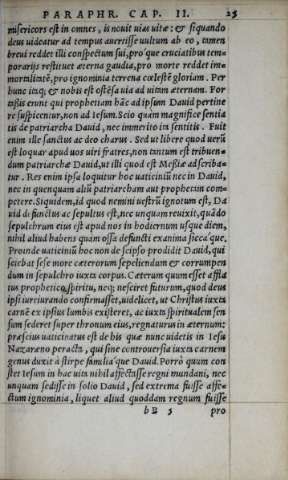 PARAPHR. CAP. II. 25
misericors est in omnes, is nouit uias uitæ: & siquando
deus uideatur ad tempus auertisse uultum ab eo, tamen
breui reddet illi conspectum sui, pro que cruciatibus tem=
porarijs restituet æterna gaudia, pro morte reddet im=
mortalitatē, pro ignominia terrena cœlestē gloriam. Per
hunc itaq; & nobis est ostēsa uia ad uitam æternam. For
taßis erunt qui prophetiam hāc ad ipsum Dauid pertine
re suspicentur, non ad Iesum. Scio quàm magnifice sentia
tis de patriarcha Dauid, nec immerito ita sentitis. Fuit
enim ille sanctus ac deo charus. Sed ut libere quod uerū
est loquar apud uos uiri fratres, non tantum est tribuen=
dum patriarchæ Dauid, ut illi quod est Meßiæ adscriba=
tur. Res enim ipsa loquitur hoc uaticiniū nec in Dauid,
nec in quenquam aliū patriarcham aut prophetam com=
petere. Siquidem, id quod nemini uestrū ignotum est, Da
uid defunctus ac sepultus est, nec unquam reuixit, quādo
sepulchrum eius est apud nos in hodiernum usque diem,
nihil aliud habens quàm ossa defuncti exanima siccaque.
Proinde uaticiniū hoc non de seipso prodidit Dauid, qui
sciebat sese more cæterorum sepeliendum & corrumpen
dum in sepulchro iuxta corpus. Cæterum quum esset affla
tus prophetico spiritu, neq; nesciret futurum, quod deus
ipsi iureiurando confirmasset, uidelicet, ut Christus iuxta
carnē ex ipsius lumbis existeret, ac iuxta spiritualem sen
sum sederet super thronum eius, regnaturus in æternum:
præscius uaticinatus est de his quæ nunc uidetis in Iesu
Nazaræno peracta, qui sine controuersia iuxta carnem
genus duxit à stirpe familiaque Dauid. Porrò quum con
stet Iesum in hac uita nihil affectasse regni mundani, nec
unquam sedisse in solio Dauid, sed extrema fuisse affe=
ctum ignominia, liquet aliud quoddam regnum fuisse
bB 5 pro